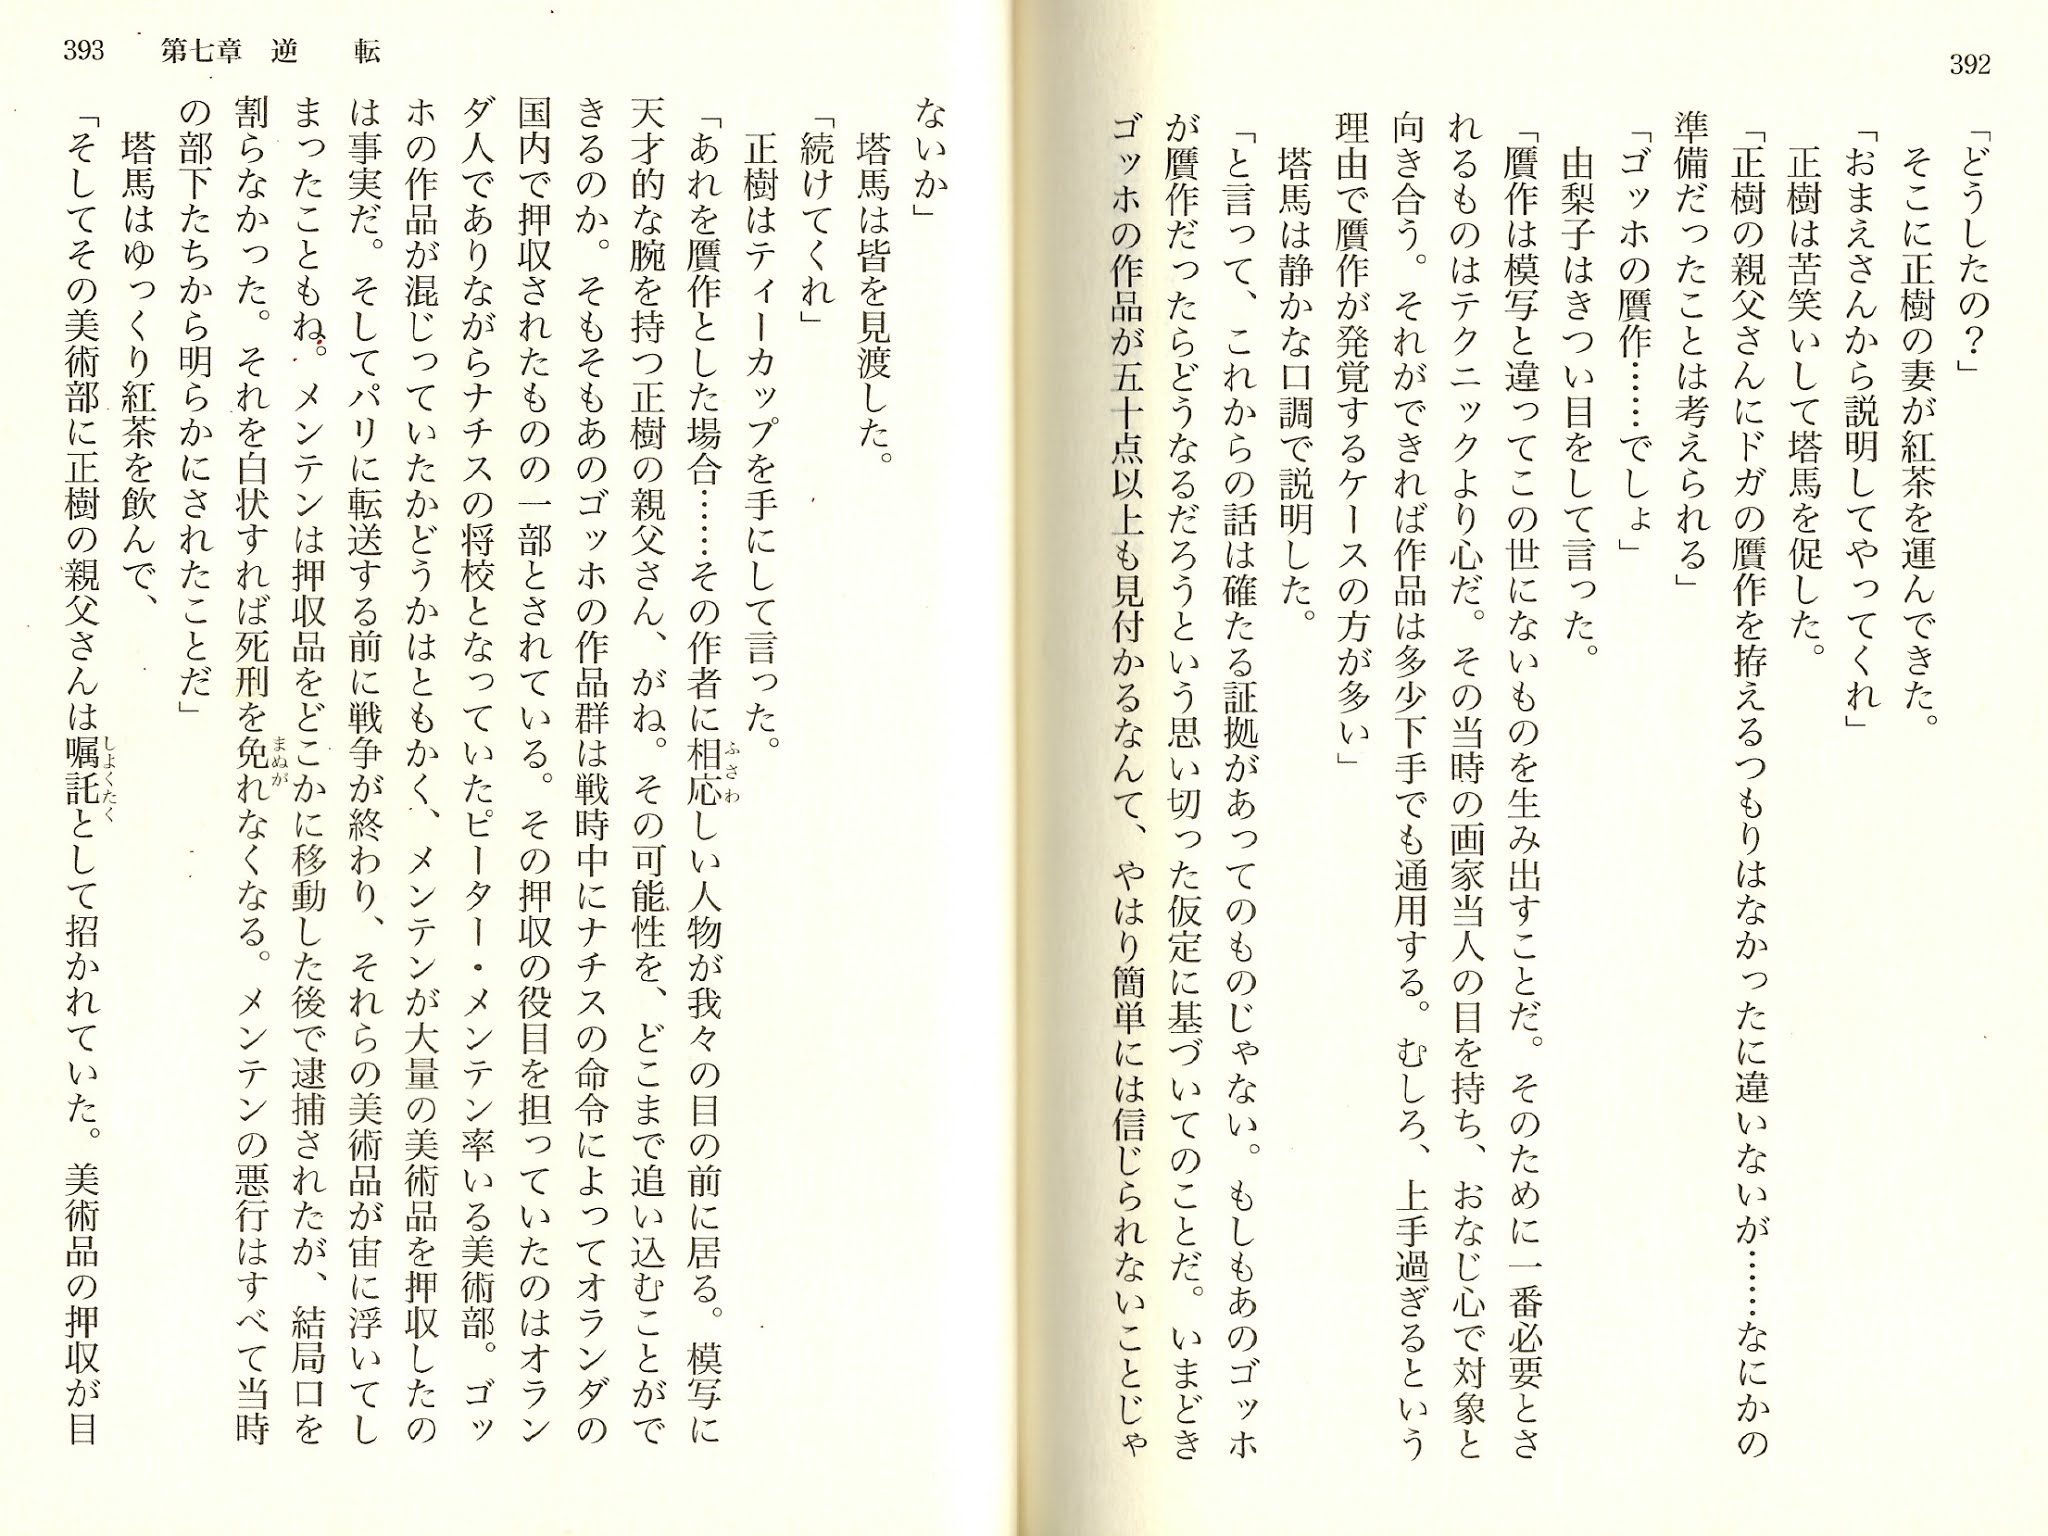 392
「どうしたの？」
そこに正樹の妻が紅茶を運んできた。
「おまえさんから説明してやってくれ」
正樹は苦笑いして塔馬を促した。
「正樹の親父さんにドガの贋作を拵えるつもりはなかったに違いないが……なにかの
準備だったことは考えられる」
「ゴッホの贋作……でしょ」
由梨子はきつい目をして言った。
「贋作は模写と違ってこの世にないものを生み出すことだ。そのために一番必要とさ
れるものはテクニックより心だ。その当時の画家当人の目を持ち、おなじ心で対象と
向き合う。それができれば作品は多少下手でも通用する。むしろ、上手過ぎるという
理由で贋作が発覚するケースの方が多い」
塔馬は静かな口調で説明した。
「と言って、これからの話は確たる証拠があってのものじゃない。もしもあのゴッホ
が贋作だったらどうなるだろうという思い切った仮定に基づいてのことだ。いまどき
ゴッホの作品が五十点以上も見付かるなんて、やはり簡単には信じられないことじゃ
393 第七章 逆 転
ないか」
塔馬は皆を見渡した。
「続けてくれ」
正樹はティーカップを手にして言った。
「あれを贋作とした場合……その作者に相応しい人物が我々の目の前に居る。模写に
天才的な腕を持つ正樹の親父さん、がね。その可能性を、どこまで追い込むことがで
きるのか。そもそもあのゴッホの作品群は戦時中にナチスの命令によってオランダの
国内で押収されたものの一部とされている。その押収の役目を担っていたのはオラン
ダ人でありながらナチスの将校となっていたピーター・メンテン率いる美術部。ゴッ
ホの作品が混じっていたかどうかはともかく、メンテンが大量の美術品を押収したの
は事実だ。そしてパリに転送する前に戦争が終わり、それらの美術品が宙に浮いてし
まったこともね。メンテンは押収品をどこかに移動した後で逮捕されたが、結局口を
割らなかった。それを白状すれば死刑を免れなくなる。メンテンの悪行はすべて当時
の部下たちから明らかにされたことだ」
塔馬はゆっくり紅茶を飲んで、
「そしてその美術部に正樹の親父さんは嘱託として招かれていた。美術品の押収が目